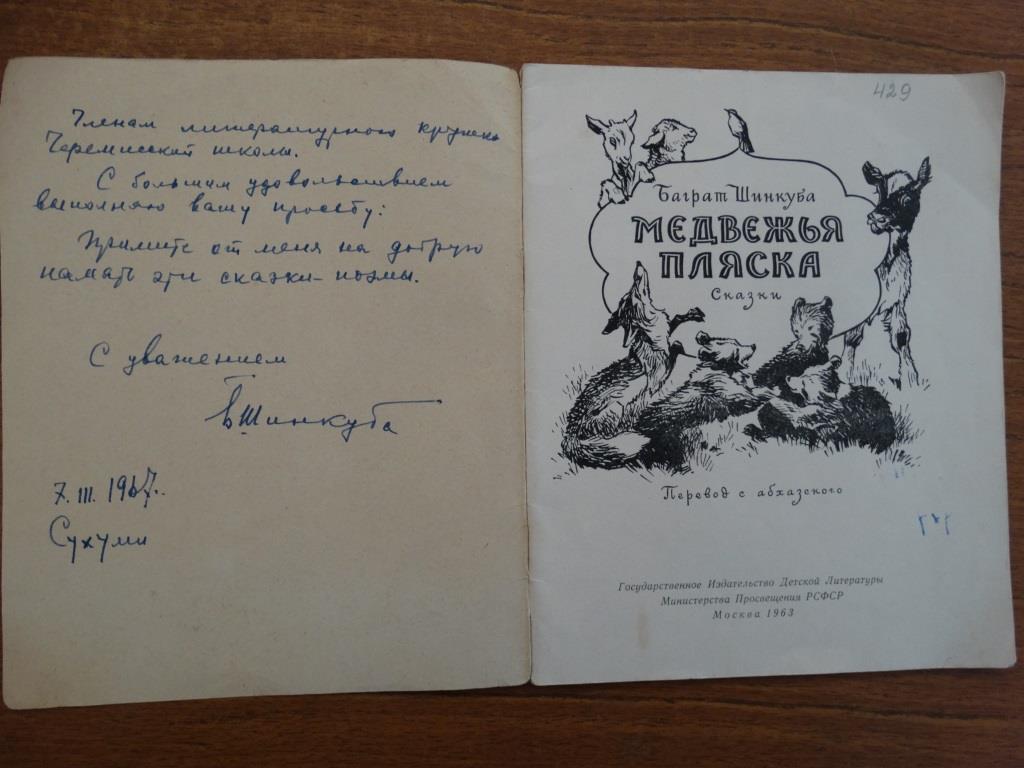 Членам литературного кружка
Черемисской школы.
С большим удовольствием
выполняю вашу просьбу:
Примите от меня на добрую
память эти сказки-поэмы.
С уважением
Б. Шинкуба
7. III. 1967.
Сухуми
429
Баграт Шинкуба
МЕДВЕЖЬЯ
ПЛЯСКА
Сказки
Перевод с абхазского
Государственное Издательство Детской Литературы
Министерства Просвещения РСФСР
Москва 1963